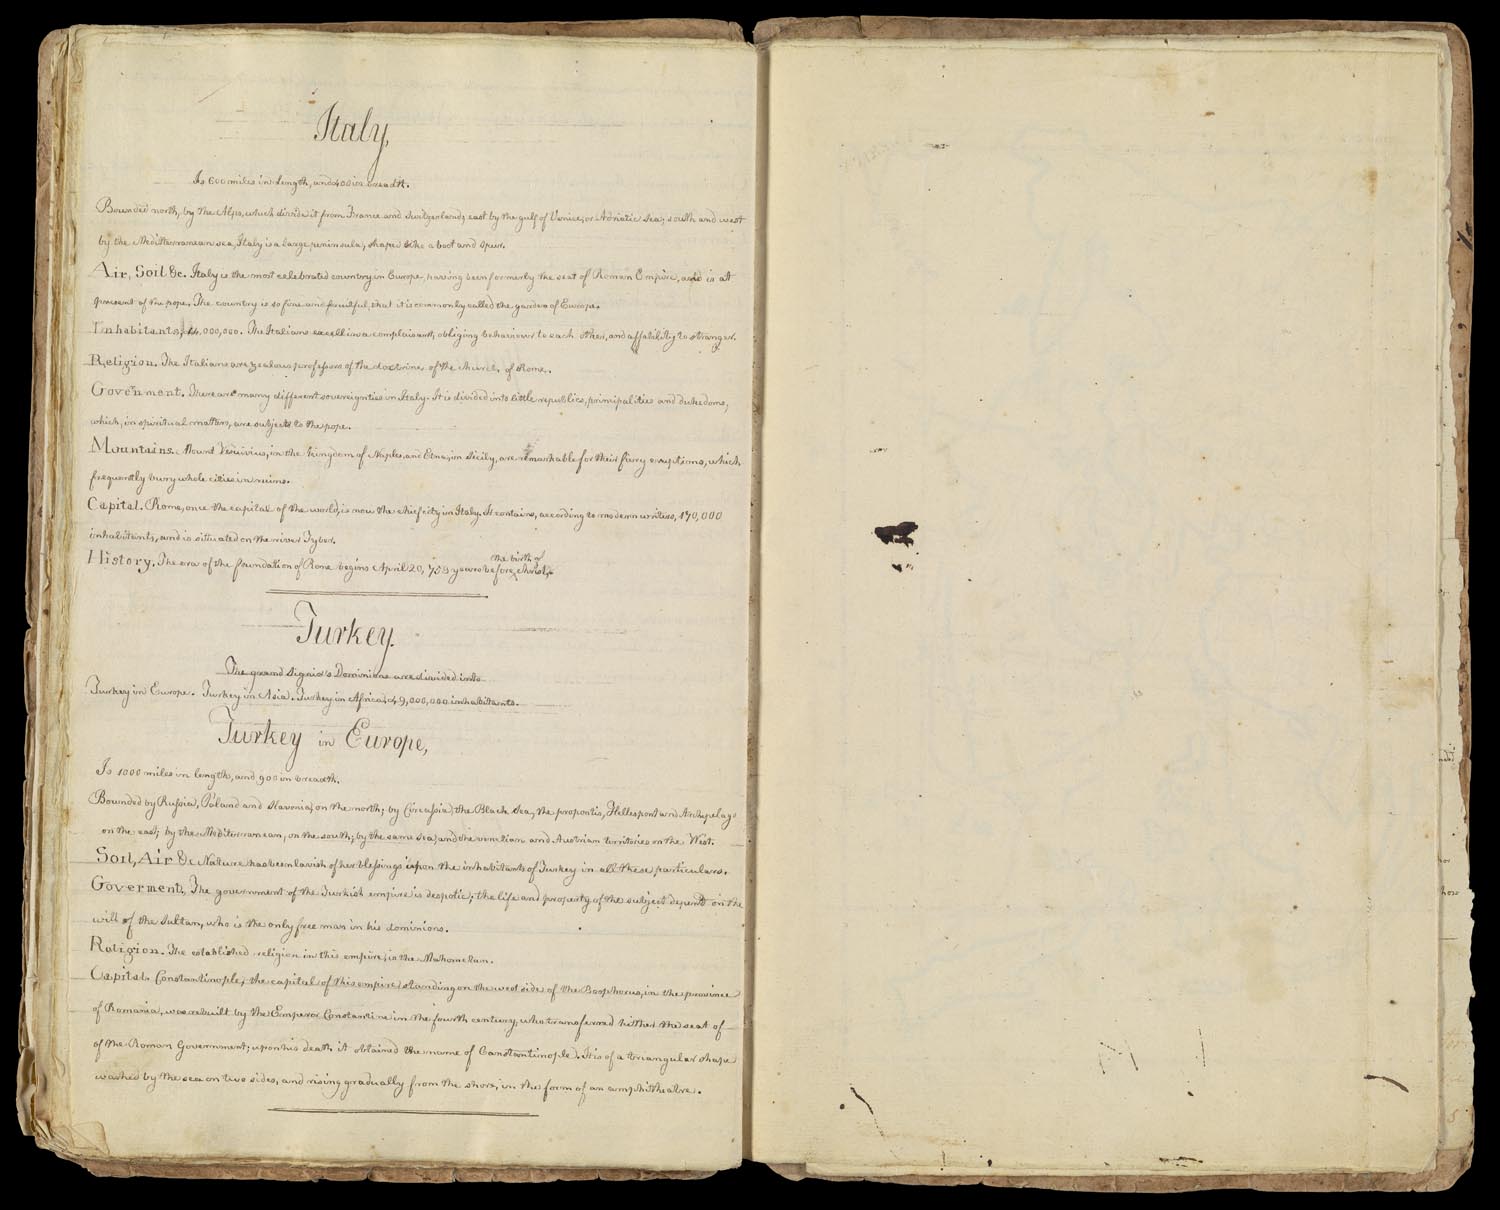 Italy,
Is 600 miles in length, and 400 in breadth.
Bounded north, by the Alps, which divide it from France and Switzerland; east by the gulf of Venice, or Adriatic Sea; south and west
by the Mediterranean sea, Italy is a large peninsula, shaped like a boot and spur.
Air, Soil &c. Italy is the most celebrated country in Europe, having been formerly the seat of Roman Empire, and is at
present of the pope. The country is so fine and fruitful, that it is commonly called the garden of Europe.
Inhabitants, 14,000,000. The Italians excell in a complaisant, obliging behaviour to each other, and affability to stranger.
Religion. The Italians are zealous professors of the doctrine of the church of Rome.
Government. There are many different sovereignties in Italy. It is divided into little republics, principalities and dukedoms,
which, in spiritual matters, are subject to the pope.
Mountains. Mount Vesuvius, in the kingdom of Naples, and Etna, in Sicily, are remarkable for their fiery eruptions, which
frequently bury whole cities in ruins.
Capital. Rome, once the capital of the world, is now the chief city in Italy. It contains, according to modern writers, 170,000
inhabitants, and is situated on the river Tyber.
the birth of
History. The era of the foundation of Rome begins April 20, 753 years before Christ.
Turkey.
The grand Signior's Dominions are divided into
Turkey in Europe. Turkey in Asia. Turkey in Africa. 49,000,000 inhabitants.
Turkey in Europe,
Is 1000 miles in length, and 900 in breadth.
Bounded by Russia, Poland and Slavonia, on the north; by Circassia, the Black Sea, the propontis, Hellespont and Archipelago
on the east; by the Mediterranean, on the south; by the same sea, and the venetian and Austrian territories on the West.
Soil, Air &c Nature has been lavish of her blessings upon the inhabitants of Turkey in all these particulars.
Goverment, The government of the Turkish empire is despotic; the life and property of the subject depend on the
will of the Sultan, who is the only free man in his dominions.
Religion. The established religion in this empire, is the Mahometan.
Capital. Constantinople, the capital of this empire, standing on the west side of the Bosphorus, in the province
of Romania, was rebuilt by the Emperor Constantine in the fourth century, who transferred hither the seat of
of the Roman Government; upon his death it obtained the name of Constantinople. It is of a triangular shape
washed by the sea on two sides, and rising gradually from the shore, in the form of an amphitheatre.